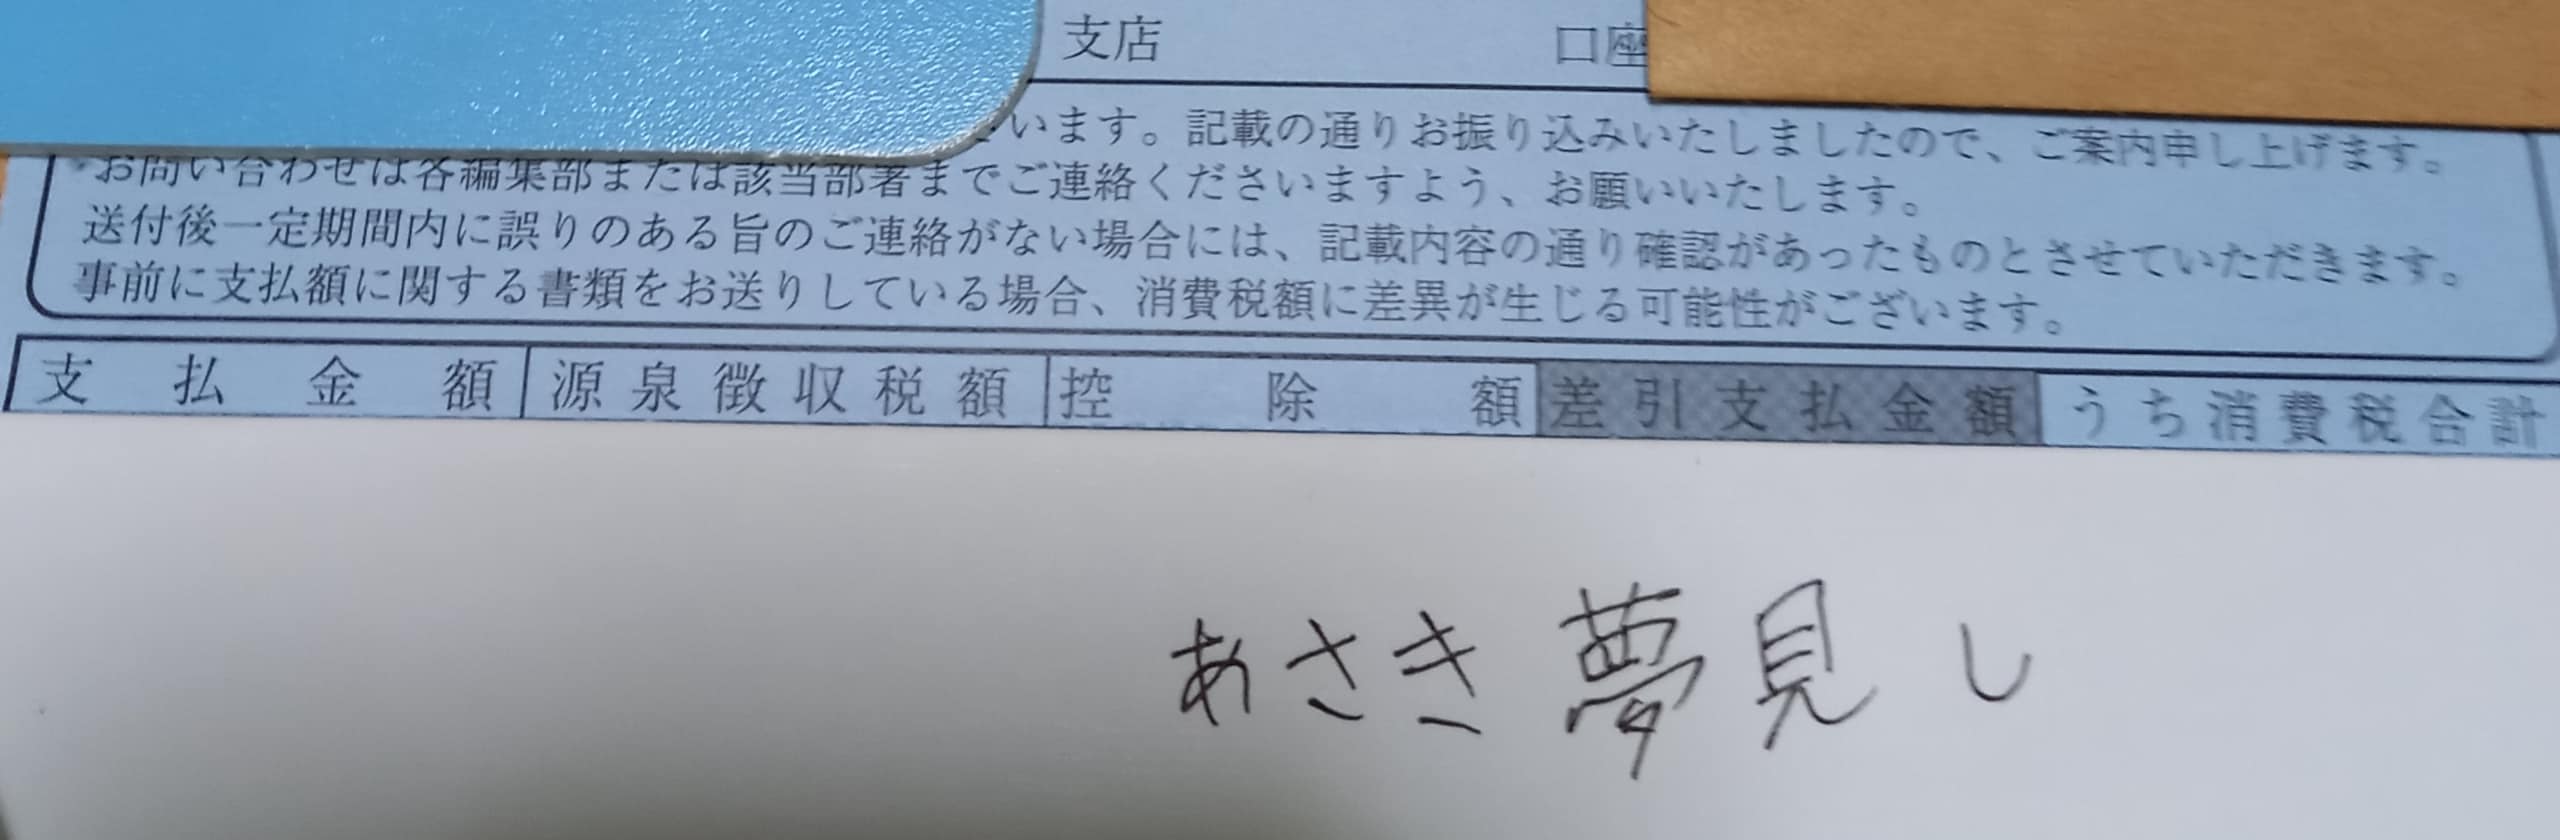 支店 口座
います。記載の通りお振り込みいたしましたので、ご案内申し上げます。
お問い合わせは各編集部または該当部署までご連絡くださいますよう、お願いいたします。
送付後一定期間内に誤りのある旨のご連絡がない場合には、記載内容の通り確認があったものとさせていただきます。
事前に支払額に関する書類をお送りしている場合、消費税額に差異が生じる可能性がございます。
支払金額 源泉徴収税額 控除額 差引支払金額 うち消費税合計
あさき夢見し